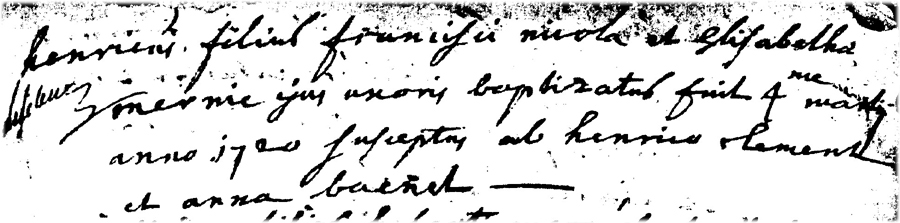 henricus filius francisci nicola et Elisabetha
mernie ejus uxoris baptizatus fuit 4me martij
anno 1720 susceptus ab henrico clement
et anna